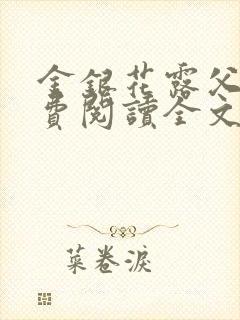 金銀花露父
費閱讀全文
菜卷淚